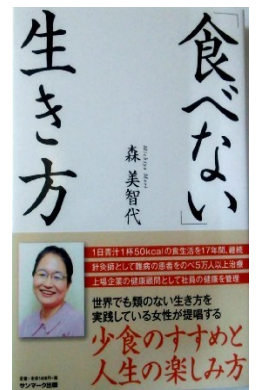 「食べない」
生き方
森 美智代
Michiyo Mori
1日青汁1杯50kcalの食生活を17年間、継続
針灸師として難病の患者をのべ5万人以上治療
上場企業の健康顧問として社員の健康を管理
世界でも類のない生き方を
実践している女性が提唱する
少食のすすめと
人生の楽しみ方
サンマーク出版